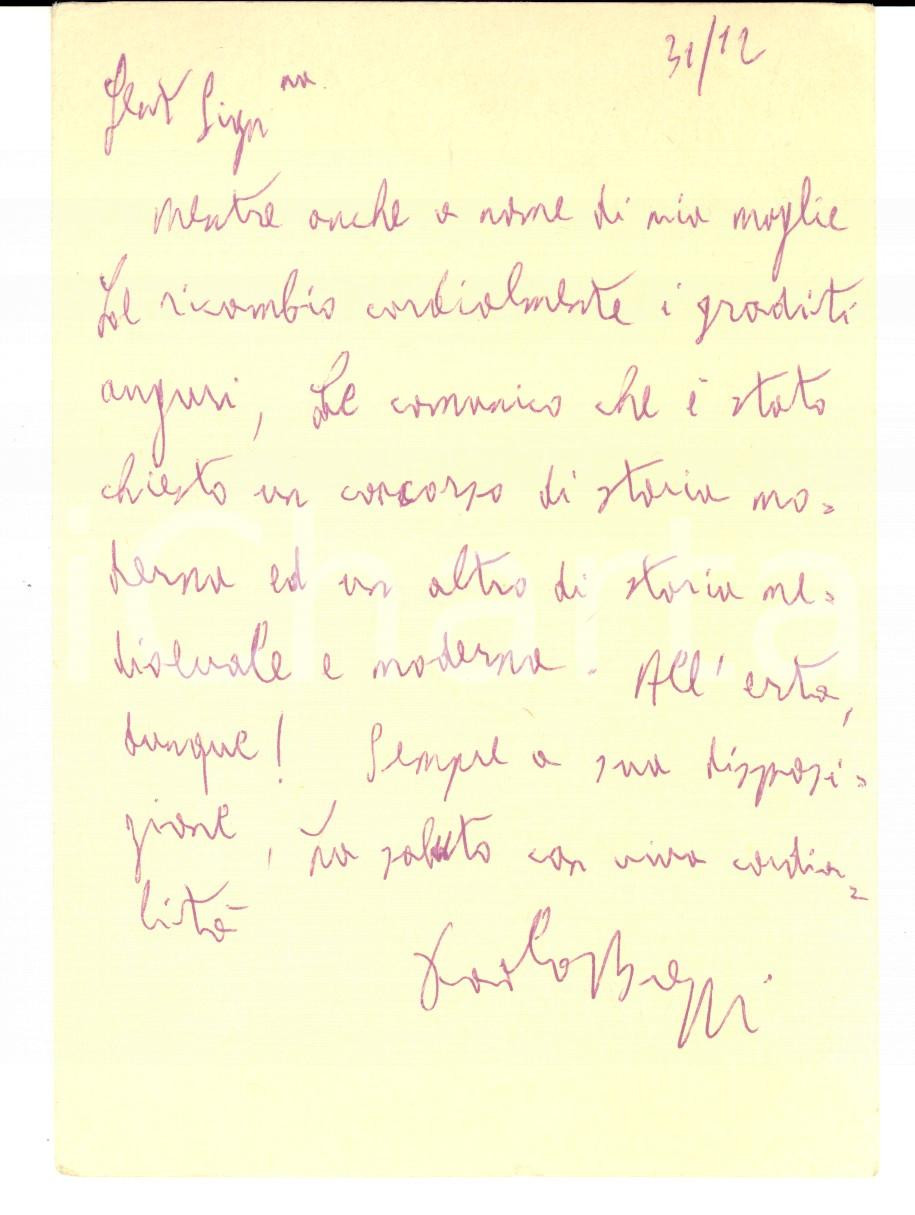 31/12
Gent Sign na
mentre anche a nome di mia moglie
Le ricambio cordialmente i graditi
auguri, Le comunico che è stato
chiesto un concorso di storia mo=
derna ed un altro di storia me=
dioevale e moderna. All'erta,
dunque! Sempre a sua disposi=
zione, La saluto con viva cordia=
lità
Paolo Brezzi
iCharta